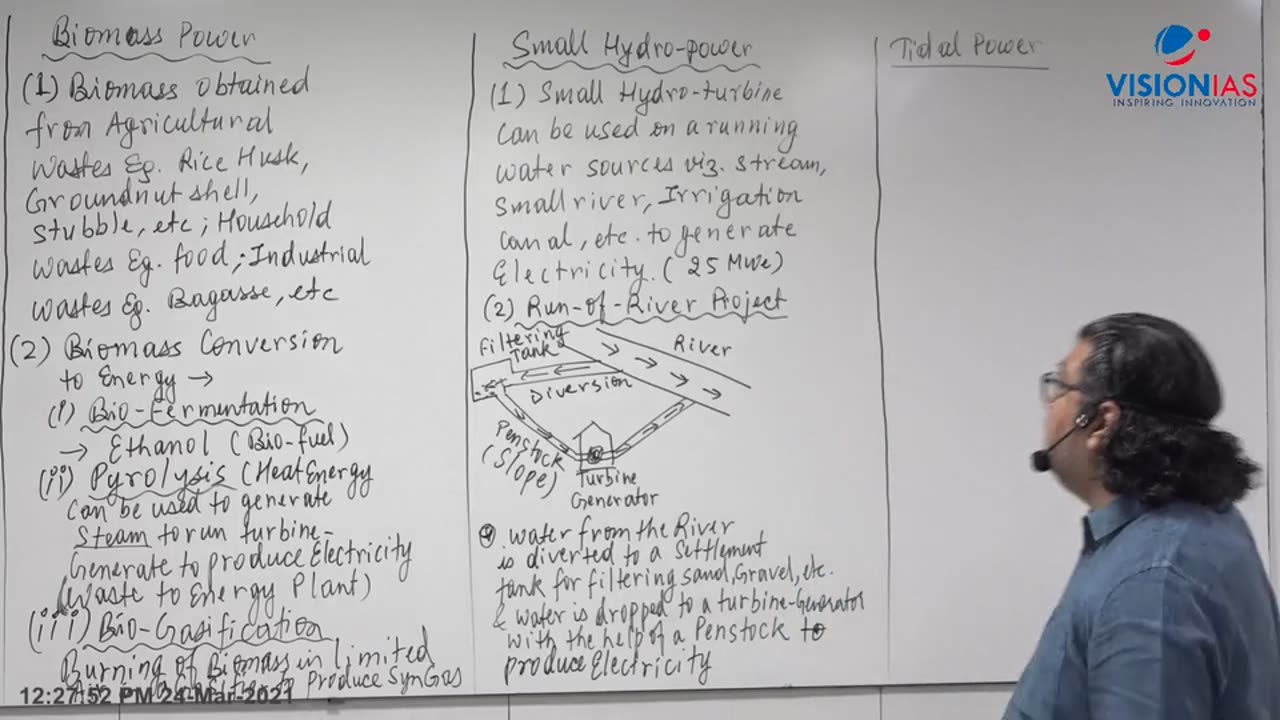 Biomass Power
(1) Biomass obtained
from Agricultural
wastes Eg. Rice Husk,
Groundnut shell,
stubble, etc; Household
wastes Eg. food; Industrial
wastes Eg. Bagasse, etc
(2) Biomass Conversion
to Energy →
(i) Bio-Fermentation
→ Ethanol (Bio-fuel)
(ii) Pyrolysis (Heat Energy
can be used to generate
Steam to run turbine-
Generate to produce Electricity
(Waste to Energy Plant)
(iii) Bio-Gasification
Burning of Biomass in limited
to produce SynGas
12:27:52 PM 24-Mar-2021
Small Hydro-power
(1) Small Hydro-turbine
can be used on a running
water sources viz. stream,
small river, Irrigation
canal, etc. to generate
Electricity. (25 MWe)
(2) Run-of-River Project
Filtering
Tank
River
Diversion
Penstock
(Slope)
Turbine
Generator
water from the River
is diverted to a settlement
tank for filtering sand, Gravel, etc.
& water is dropped to a turbine-Generator
with the help of a Penstock to
produce Electricity
Tidal Power
VISIONIAS
INSPIRING INNOVATION